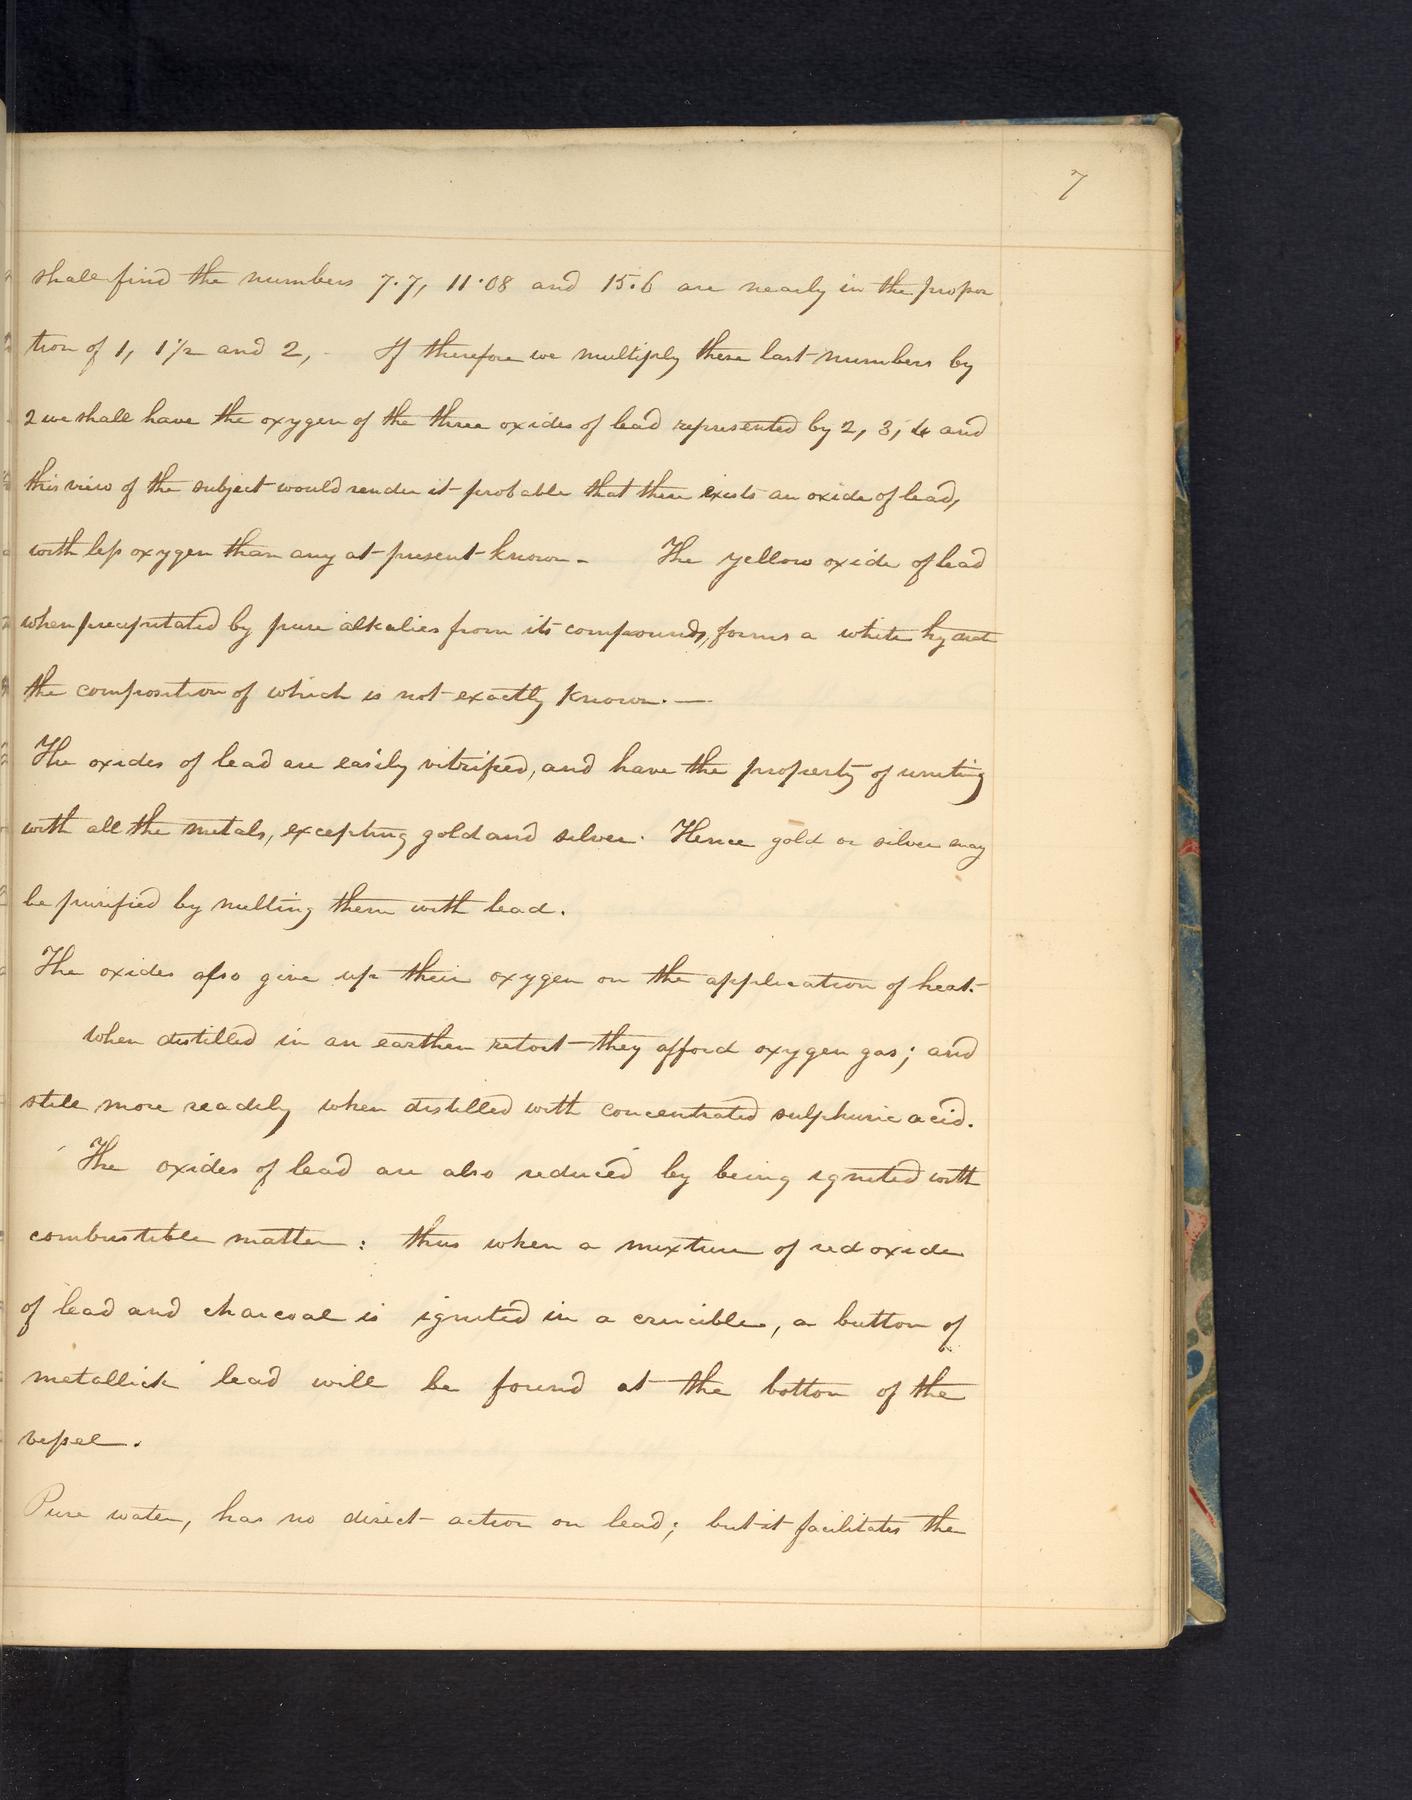 7
shall find the numbers 7.7, 11.08 and 15.6 are nearly in the propor
tion of 1, 1 1/2 and 2, - If therefore we multiply these last numbers by
2 we shall have the oxygen of the three oxides of lead represented by 2, 3, 4 and
this view of the subject would render it probable that there exists an oxide of lead,
with less oxygen than any at present known - The yellow oxide of lead
when precipitated by pure alkalies from its compounds, forms a white hydrate
the composition of which is not exactly known. —
The oxides of lead are easily vitrified, and have the property of uniting
with all the metals, excepting gold and silver. Hence gold or silver may
be purified by melting them with lead.
The oxides also give up their oxygen on the application of heat.
when distilled in an earthen retort they afford oxygen gas; and
still more readily when distilled with concentrated sulphuric acid.
The oxides of lead are also reduced by being ignited with
combustible matter: thus when a mixture of red oxide
of lead and charcoal is ignited in a crucible, a button of
metallick lead will be found at the bottom of the
vessel.
Pure water, has no direct action on lead; but it facilitates the